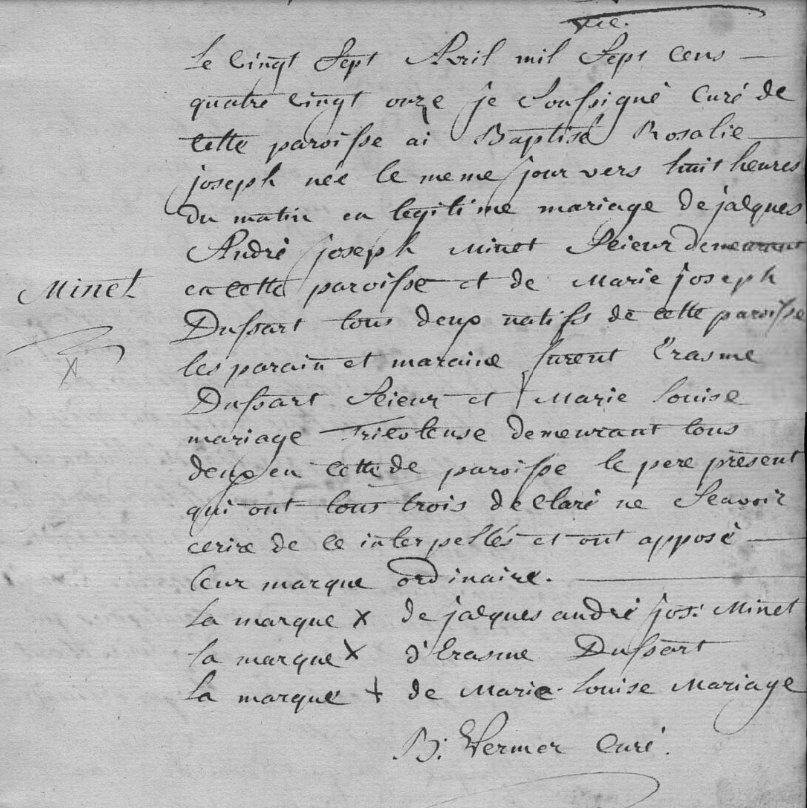 Le vingt Sept Avril mil Sept cens
quatre vingt onze je Soussigné Curé de
cette paroisse ai Baptisé Rosalie
joseph née le meme jour vers huit heures
du matin en legitime mariage de jacques
André joseph Minet Scieur demeurant
Minet
en cette paroisse et de Marie joseph
Dussart tous deux natifs de cette paroisse
les parain et maraine furent Erasme
Dussart Scieur et Marie Louise
mariage Tricoteuse demeurant tous
deux en cette de paroisse le pere present
qui ont tous trois declaré ne Scavoir
ecrire de ce interpellés et ont apposé
leur marque ordinaire.
La marque x de jacques andré jos: Minet
La marque x d'Erasme Dussart
La marque + de Marie-Louise Mariage
B: Vermer Curé.